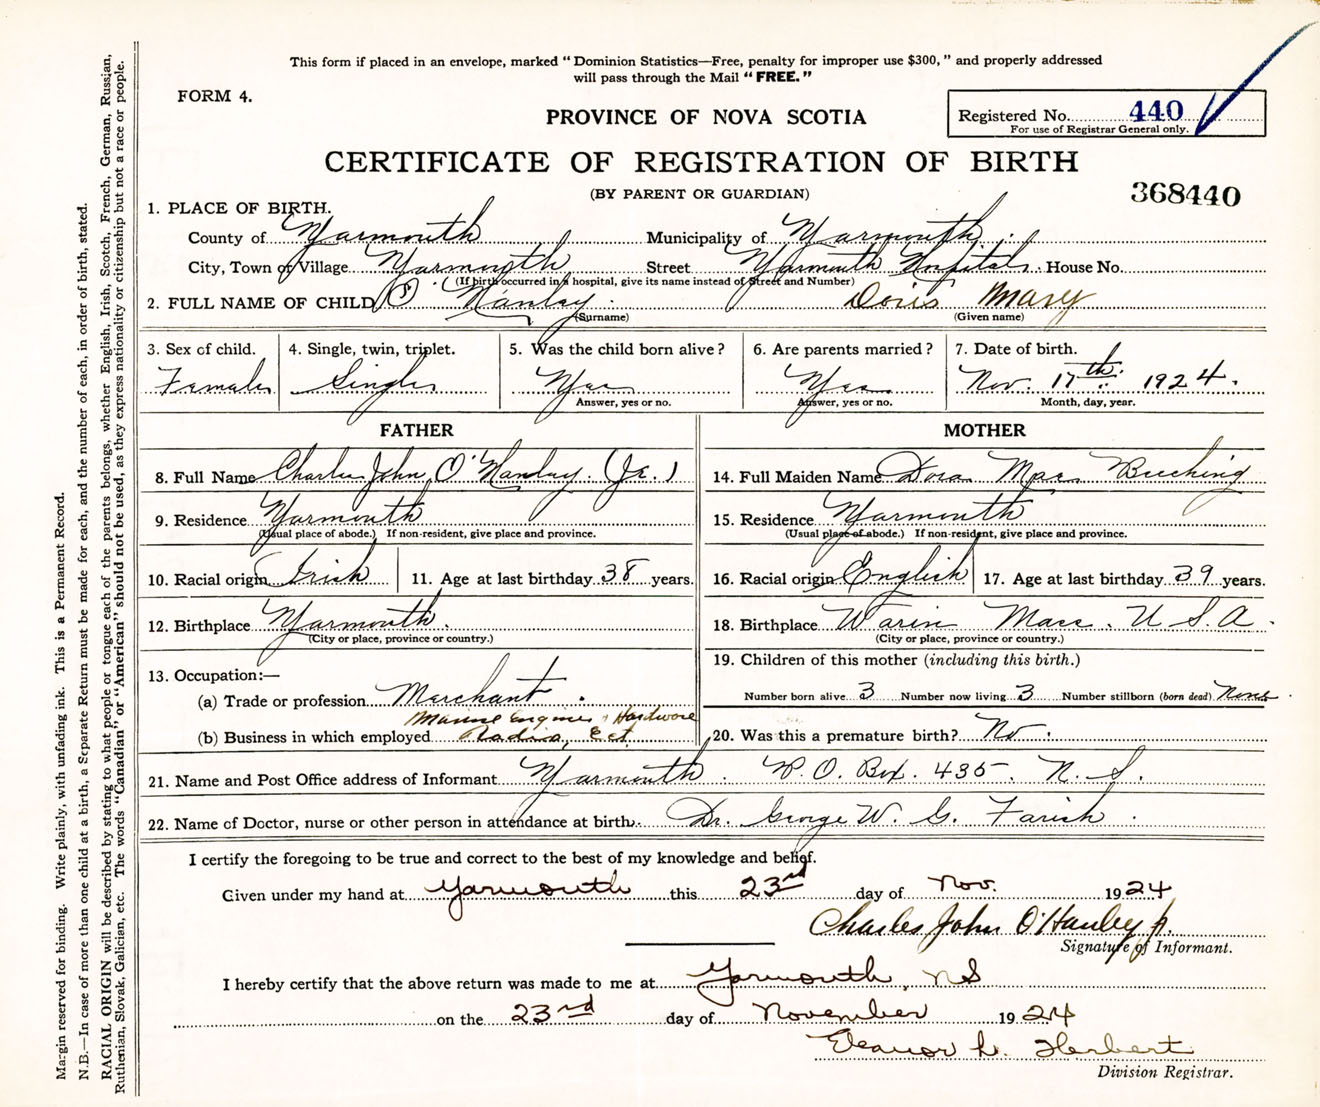 This form if placed in an envelope, marked "Dominion Statistics—Free, penalty for improper use $300," and properly addressed
will pass through the Mail "FREE."
FORM 4.
PROVINCE OF NOVA SCOTIA
Registered No. 440
For use of Registrar General only.
CERTIFICATE OF REGISTRATION OF BIRTH
(BY PARENT OR GUARDIAN)
368440
1. PLACE OF BIRTH.
County of Yarmouth Municipality of Yarmouth
City, Town or Village Yarmouth Street Yarmouth Hospital. House No.
(If birth occurred in a hospital, give its name instead of Street and Number)
2. FULL NAME OF CHILD O'Hanley Doris Mary
(Surname) (Given name)
3. Sex of child. 4. Single, twin, triplet. 5. Was the child born alive? 6. Are parents married? 7. Date of birth.
Female Single Yes Yes Nov. 17th 1924.
Answer, yes or no. Answer, yes or no. Month, day, year.
FATHER MOTHER
8. Full Name Charles John O'Hanley (Jr.) 14. Full Maiden Name Dora Mae Beeching
9. Residence Yarmouth 15. Residence Yarmouth
(Usual place of abode.) If non-resident, give place and province. (Usual place of abode.) If non-resident, give place and province.
10. Racial origin Irish 11. Age at last birthday 38 years. 16. Racial origin English 17. Age at last birthday 39 years.
12. Birthplace Yarmouth. 18. Birthplace Mass. U.S.A.
(City or place, province or country.) (City or place, province or country.)
13. Occupation:— 19. Children of this mother (including this birth.)
(a) Trade or profession Merchant. Number born alive 3 Number now living 3 Number stillborn (born dead) None
Marine Engines & Hardware
(b) Business in which employed Radio, Ect. 20. Was this a premature birth? No.
21. Name and Post Office address of Informant Yarmouth. P.O. Box. 435. N.S.
22. Name of Doctor, nurse or other person in attendance at birth. Dr. George W. G. Farish.
I certify the foregoing to be true and correct to the best of my knowledge and belief.
Given under my hand at Yarmouth this 23rd day of Nov. 1924
Charles John O'Hanley Jr.
Signature of Informant.
I hereby certify that the above return was made to me at Yarmouth, NS
on the 23rd day of November 1924
Eleanor L. Herbert
Division Registrar.
Margin reserved for binding. Write plainly, with unfading ink. This is a Permanent Record.
N.B.—In case of more than one child at a birth, a Separate Return must be made for each, and the number of each, in order of birth, stated.
RACIAL ORIGIN will be described by stating to what people or tongue each of the parents belongs, whether English, Irish, Scotch, French, German, Russian,
Ruthenian, Slovak, Galician, etc. The words "Canadian" or "American" should not be used, as they express nationality or citizenship but not a race or people.